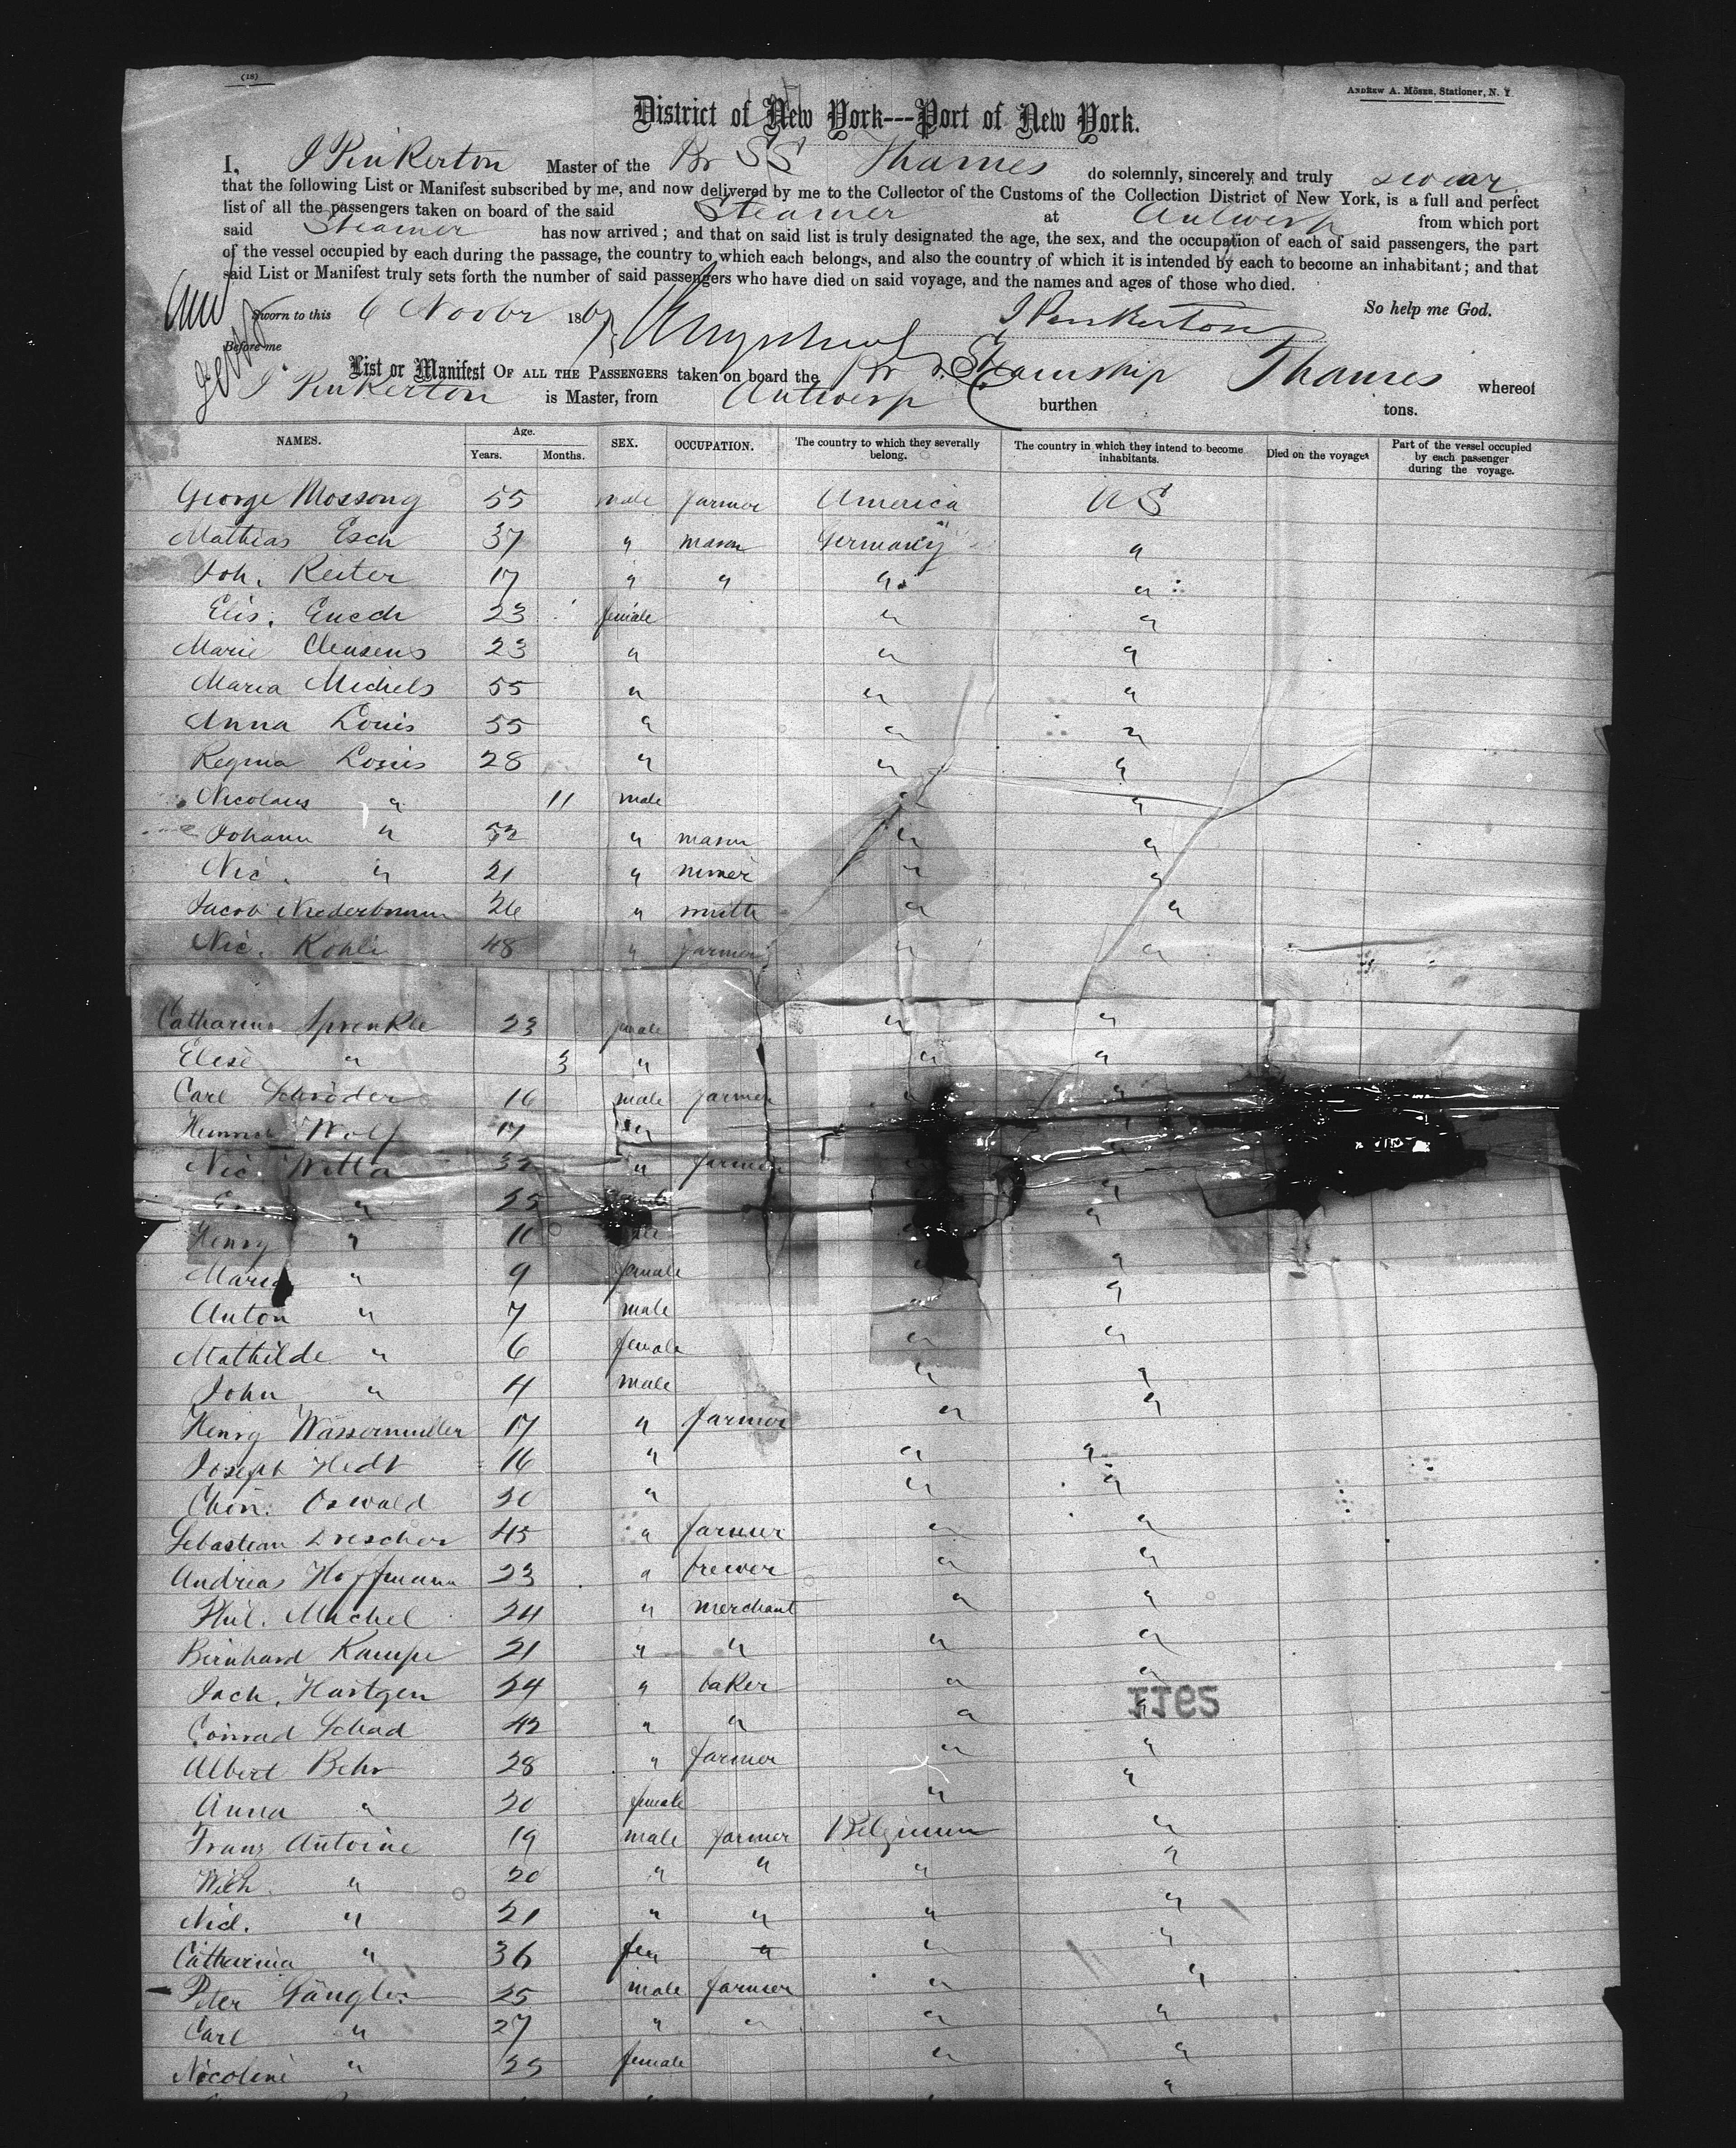 (18)
ANDREW A. MÖSER, Stationer, N. Y.
District of New York---Port of New York.
I, J Pinkerton Master of the Br SS Thames do solemnly, sincerely and truly swear
that the following List or Manifest subscribed by me, and now delivered by me to the Collector of the Customs of the Collection District of New York, is a full and perfect
list of all the passengers taken on board of the said Steamer at Antwerp from which port
said Steamer has now arrived; and that on said list is truly designated the age, the sex, and the occupation of each of said passengers, the part
of the vessel occupied by each during the passage, the country to which each belongs, and also the country of which it is intended by each to become an inhabitant; and that
said List or Manifest truly sets forth the number of said passengers who have died on said voyage, and the names and ages of those who died.
Sworn to this 6 Novbr 1867 J Pinkerton So help me God.
Before me
List or Manifest OF ALL THE PASSENGERS taken on board the Br Steamship Thames whereof
J Pinkerton is Master, from Antwerp burthen tons.
NAMES. Age. Years. Months. SEX. OCCUPATION. The country to which they severally belong. The country in which they intend to become inhabitants. Died on the voyage. Part of the vessel occupied by each passenger during the voyage.
George Mossong 55 male farmer America US
Mathias Esch 37 " mason Germany "
Joh. Reiter 17 " " " "
Elis. Euech 23 female " "
Marie Clensens 23 " " "
Maria Michels 55 " " "
Anna Louis 55 " " "
Regina Louis 28 " " "
Nicolaus " 11 male " "
Johann " 52 " mason " "
Nic. " 21 " miner " "
Jacob Niederbrumm 26 " smith " "
Nic. Kohli 48 " farmer " "
Catharine Sprenkle 23 female " "
Elise " 3 " " "
Carl Schröder 16 male farmer "
Heinrich Wolf 17 "
Nic. Witta 32 " farmer
" 25 "
Henry " 10 male "
Maria " 9 female "
Anton " 7 male " "
Mathilde " 6 female " "
John " 4 male " "
Henry Wassermuller 17 " farmer " "
Joseph Hedt 16 " " "
Chin. Oswald 20 " " "
Sebastian Drescher 45 " farmer " "
Andreas Hoffmann 23 " brewer " "
Phil. Michel 24 " merchant " "
Bernhard Kampe 21 " " " "
Jach. Hartgen 24 " baker " "
Conrad Schad 42 " " " "
Albert Behr 28 " farmer " "
Anna " 20 female " "
Franz Antoine 19 male farmer Belgium "
Wilh. " 20 " " " "
Nicl. " 21 " " " "
Catharina " 36 fem " " "
Peter Gängler 25 male farmer " "
Carl " 27 " " " "
Nicoline " 25 female " "